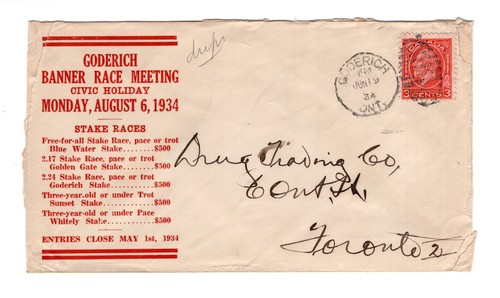 GODERICH
BANNER RACE MEETING
CIVIC HOLIDAY
MONDAY, AUGUST 6, 1934
STAKE RACES
Free-for-all Stake Race, pace or trot
Blue Water Stake........$500
2.17 Stake Race, pace or trot
Golden Gate Stake.....$500
2.24 Stake Race, pace or trot
Goderich Stake..........$500
Three-year-old or under Trot
Sunset Stake..............$500
Three-year-old or under Pace
Whitely Stake............$500
ENTRIES CLOSE MAY 1st, 1934
GODERICH
PM
JUN 19
34
ONT.
CANADA
3 CENTS 3
Drug Trading Co,
Ont. St.
Toronto 2